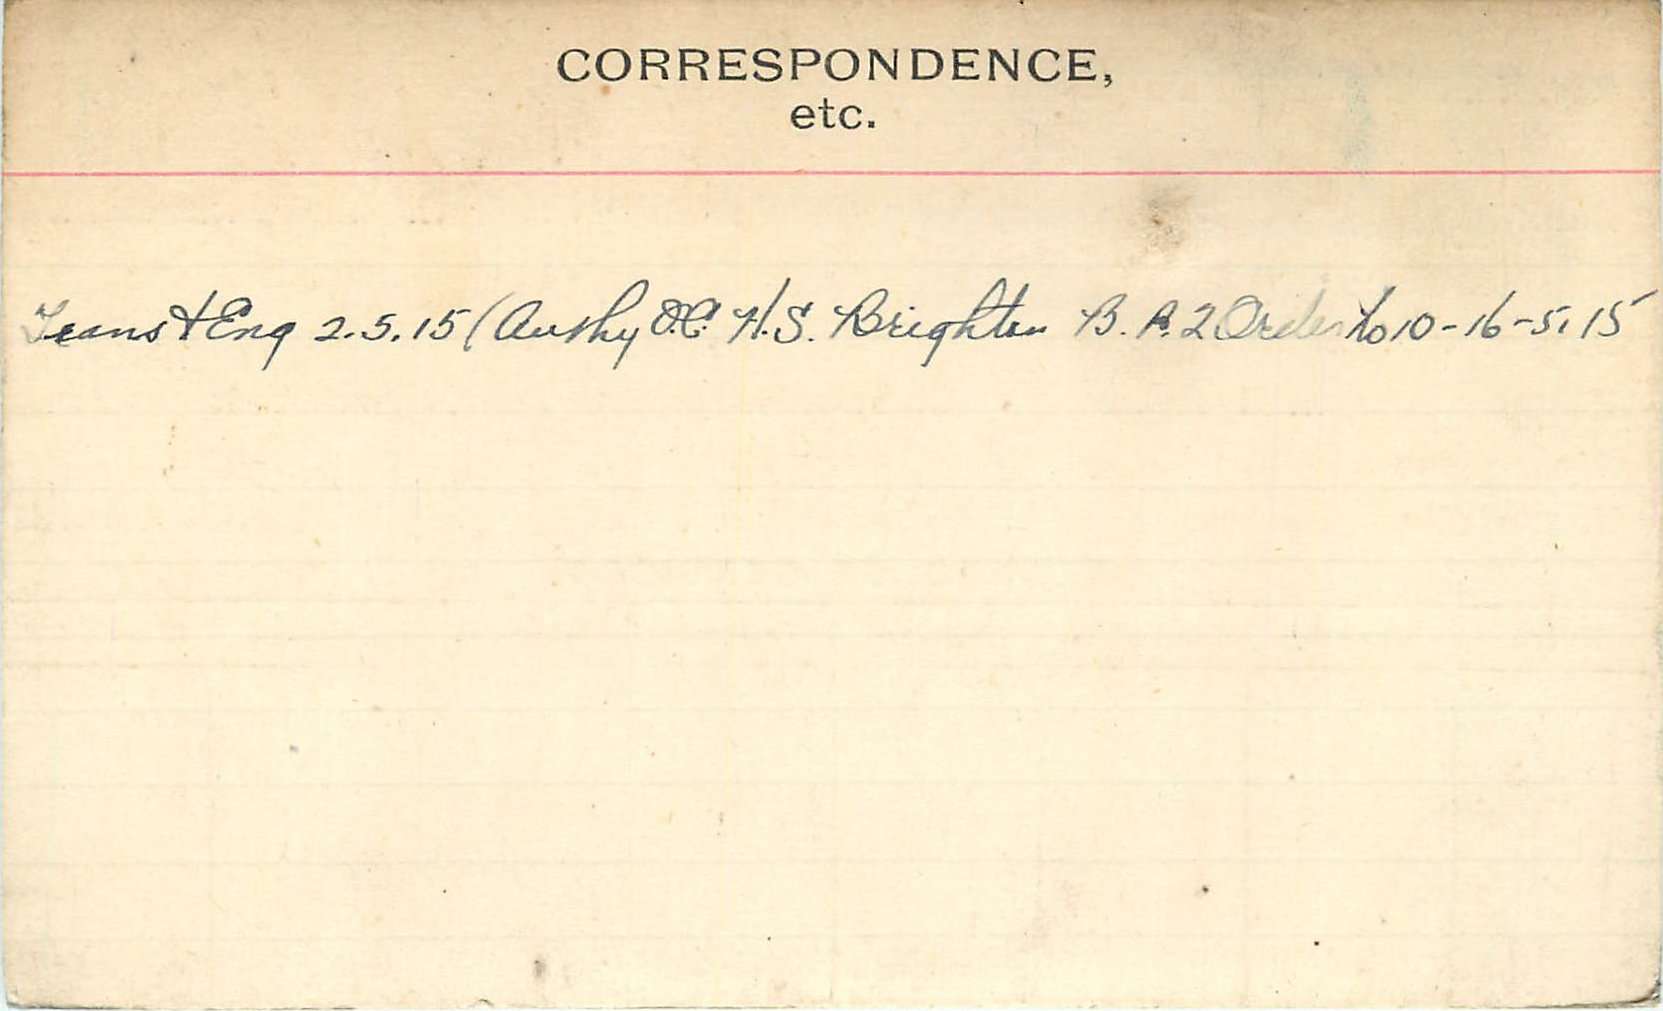 CORRESPONDENCE,
etc.
Trans t Eng 2.5.15 (Authy O.C. H.S. Brighton B. R. 2 Order No 10-16-5.15